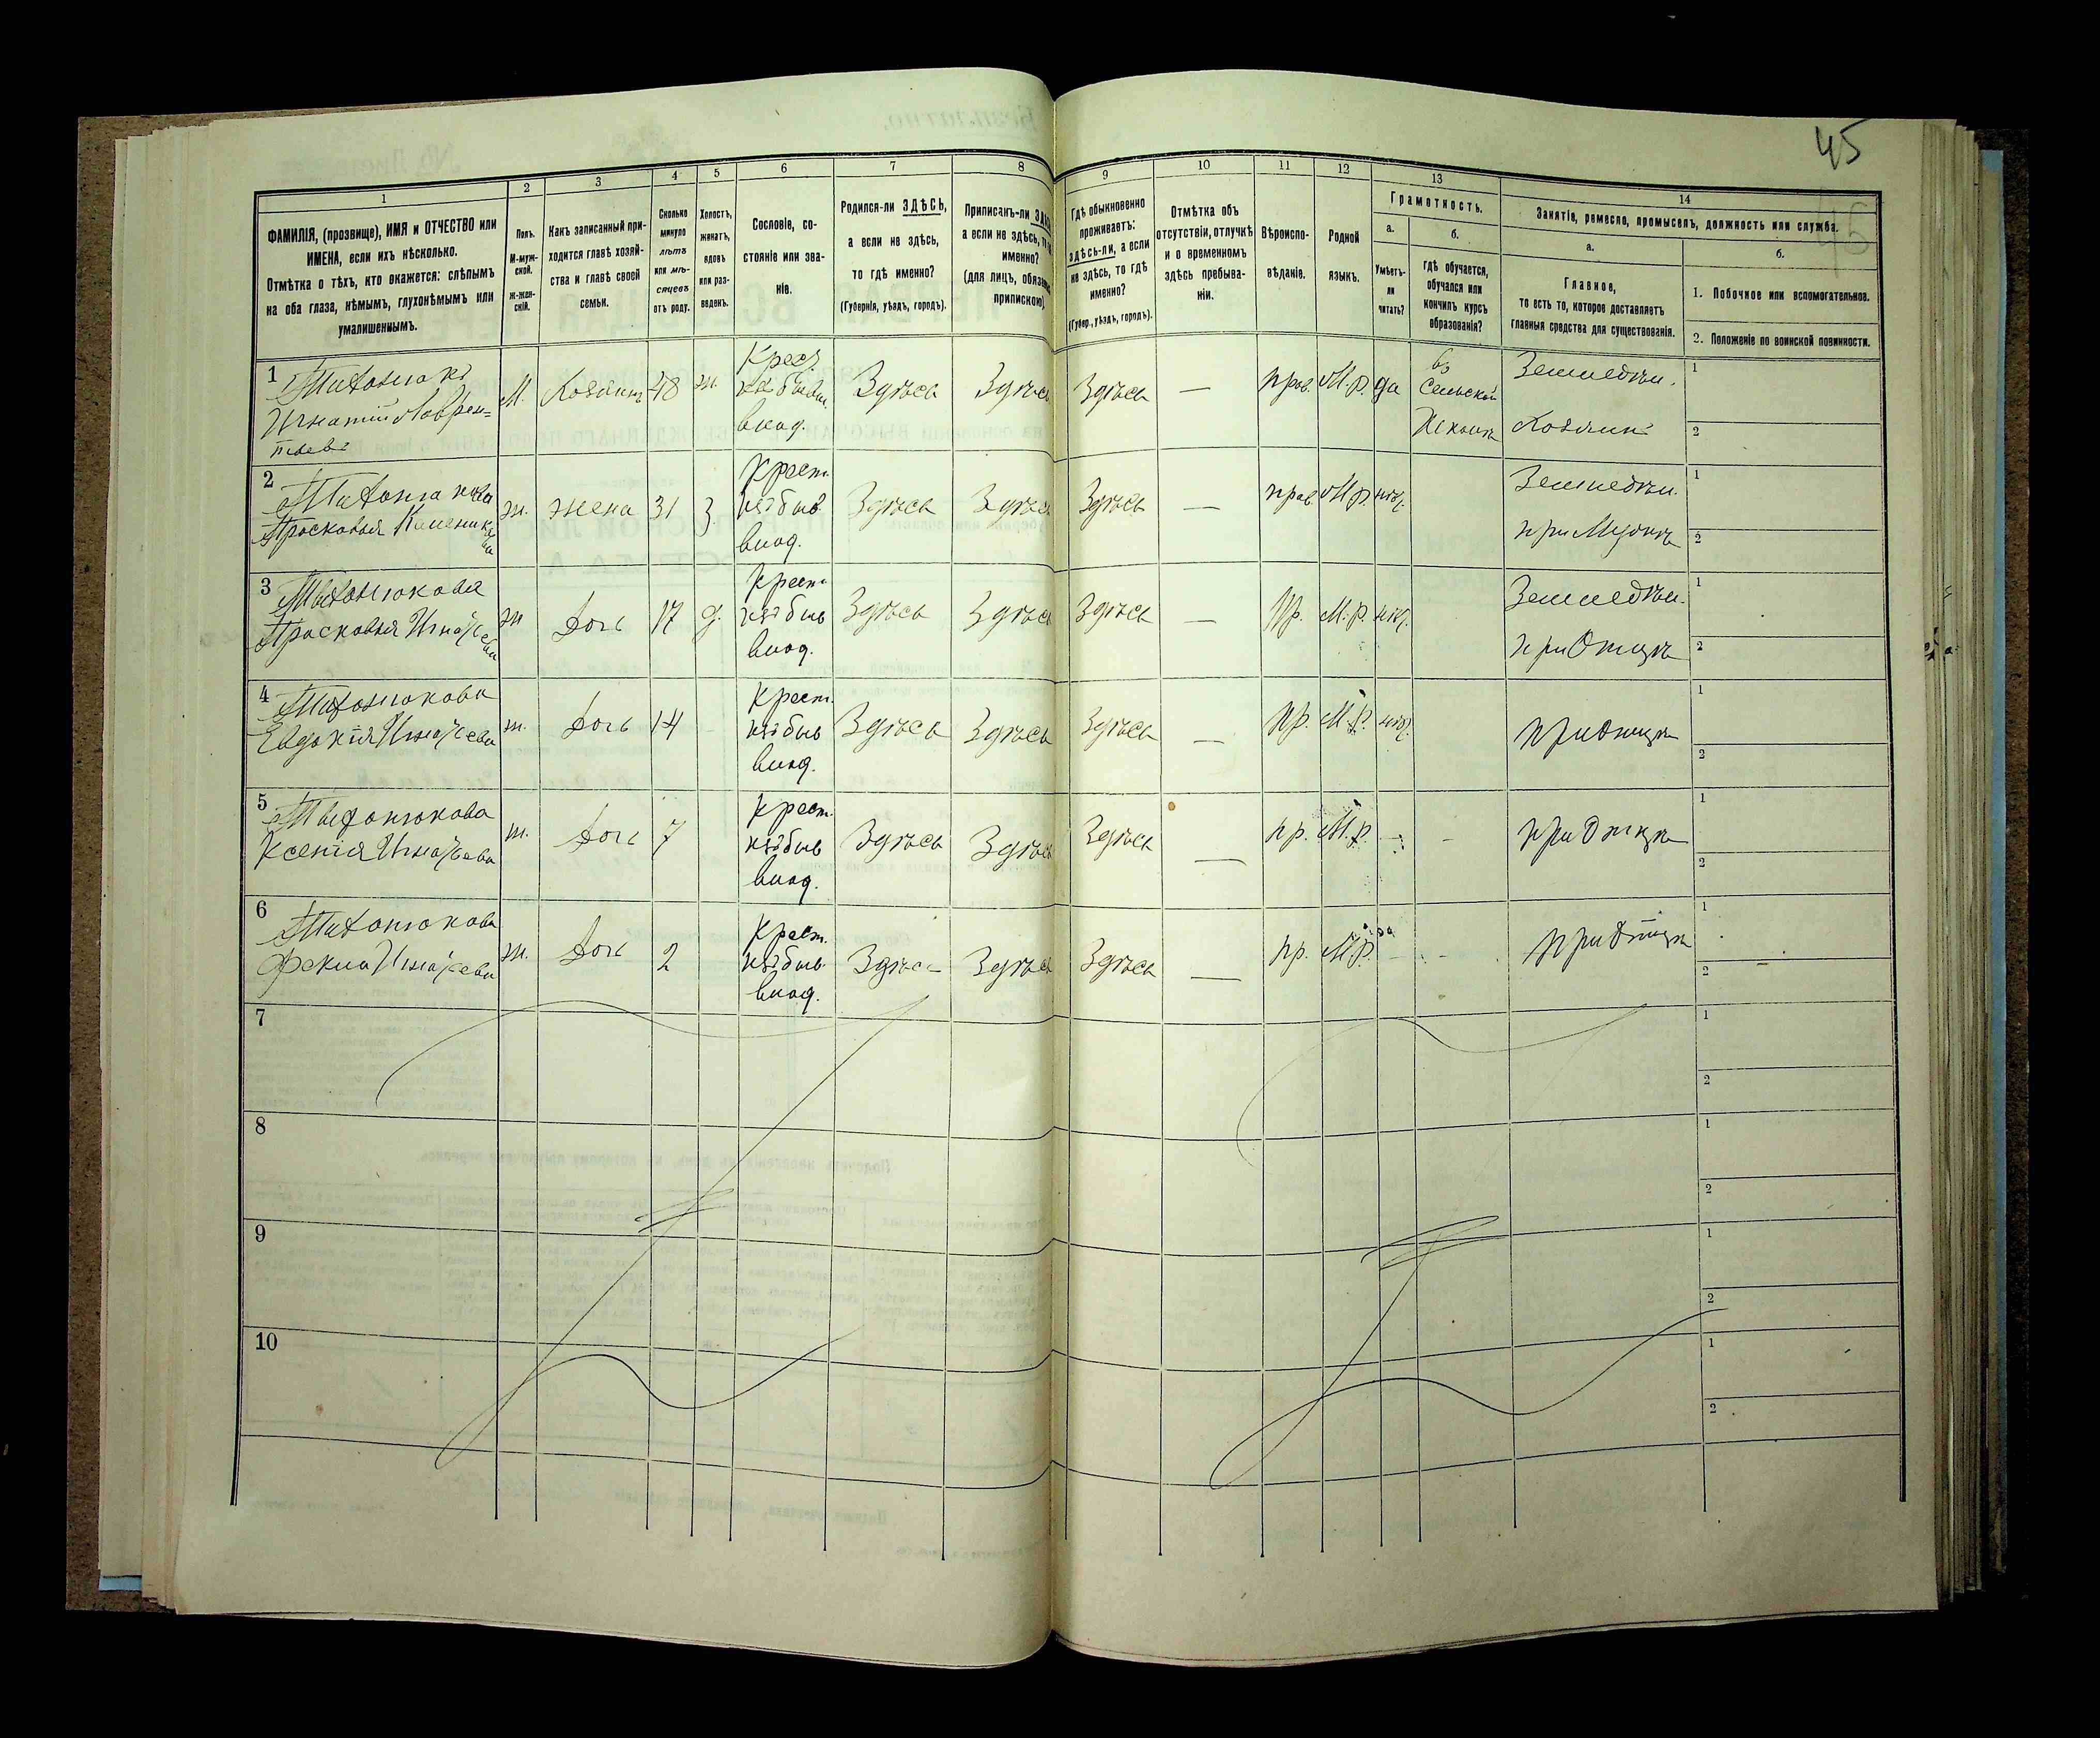 45
46
1
2
3
4
5
6
7
8
9
10
11
12
13
14
ФАМИЛІЯ, (прозвище), ИМЯ и ОТЧЕСТВО или
ИМЕНА, если ихъ нѣсколько.
Отмѣтка о тѣхъ, кто окажется: слѣпымъ
на оба глаза, нѣмымъ, глухонѣмымъ или
умалишеннымъ.
Полъ.
М-муж-
ской.
Ж-жен-
скій.
Какъ записанный при-
ходится главѣ хозяй-
ства и главѣ своей
семьи.
Сколько
минуло
лѣтъ
или мѣ-
сяцевъ
отъ роду.
Холостъ,
женатъ,
вдовъ
или раз-
веденъ.
Сословіе, со-
стояніе или зва-
ніе.
Родился-ли ЗДѢСЬ,
а если не здѣсь,
то гдѣ именно?
(Губернія, уѣздъ, городъ).
Приписанъ-ли
а если не здѣсь,
именно?
(для лицъ,
припискою)
Гдѣ обыкновенно
проживаетъ:
здѣсь-ли, а если
не здѣсь, то гдѣ
именно?
(Губер., уѣздъ, городъ).
Отмѣтка объ
отсутствіи, отлучкѣ
и о временномъ
здѣсь пребыва-
ніи.
Вѣроиспо-
вѣданіе.
Родной
языкъ.
Грамотность.
а.
Умѣетъ-
ли
читать?
б.
гдѣ обучается,
обучался или
кончилъ курсъ
образованія?
Занятіе, ремесло, промыселъ, должность или служба.
а.
Главное,
то есть то, которое доставляетъ
главныя средства для существованія.
б.
1. Побочное или вспомогательное.
2. Положеніе по воинской повинности.
1
Игнатій Лаврен=
тьевъ
М. Хозяинъ 48 ж.
Крест.
изъ бывш.
влад.
Здѣсь Здѣсь Здѣсь — прав. М.р. да
въ
Сельской
Школѣ
Земледѣл.
Хозяинъ
1
2
2
Прасковья
ж. жена 31 З.
Крест.
изъ быв.
влад.
Здѣсь Здѣсь Здѣсь — прав. М.р. нѣт.
Земледѣл.
при Мужѣ
1
2
3
Прасковья Игнатьева
ж Дочь 17 д.
Крест.
изъ быв
влад.
Здѣсь Здѣсь Здѣсь — Пр. М.р. нѣт.
Земледѣл.
при Отцѣ
1
2
4
Евдокія Игнатьева
ж. Дочь 14
Крест.
изъ быв
влад.
Здѣсь Здѣсь Здѣсь — Пр. М.р. нѣт.
при Отцѣ
1
2
5
Ксенія Игнатьева
ж. Дочь 7
Крест.
изъ быв
влад.
Здѣсь Здѣсь Здѣсь — пр. М.р. — -
при Отцѣ
1
2
6
Фекла Игнатьева
ж. Дочь 2
Крест.
изъ быв.
влад.
Здѣсь Здѣсь Здѣсь — пр. М.р. - -
при Отцѣ
1
2
7
1
2
8
1
2
9
1
2
10
1
2